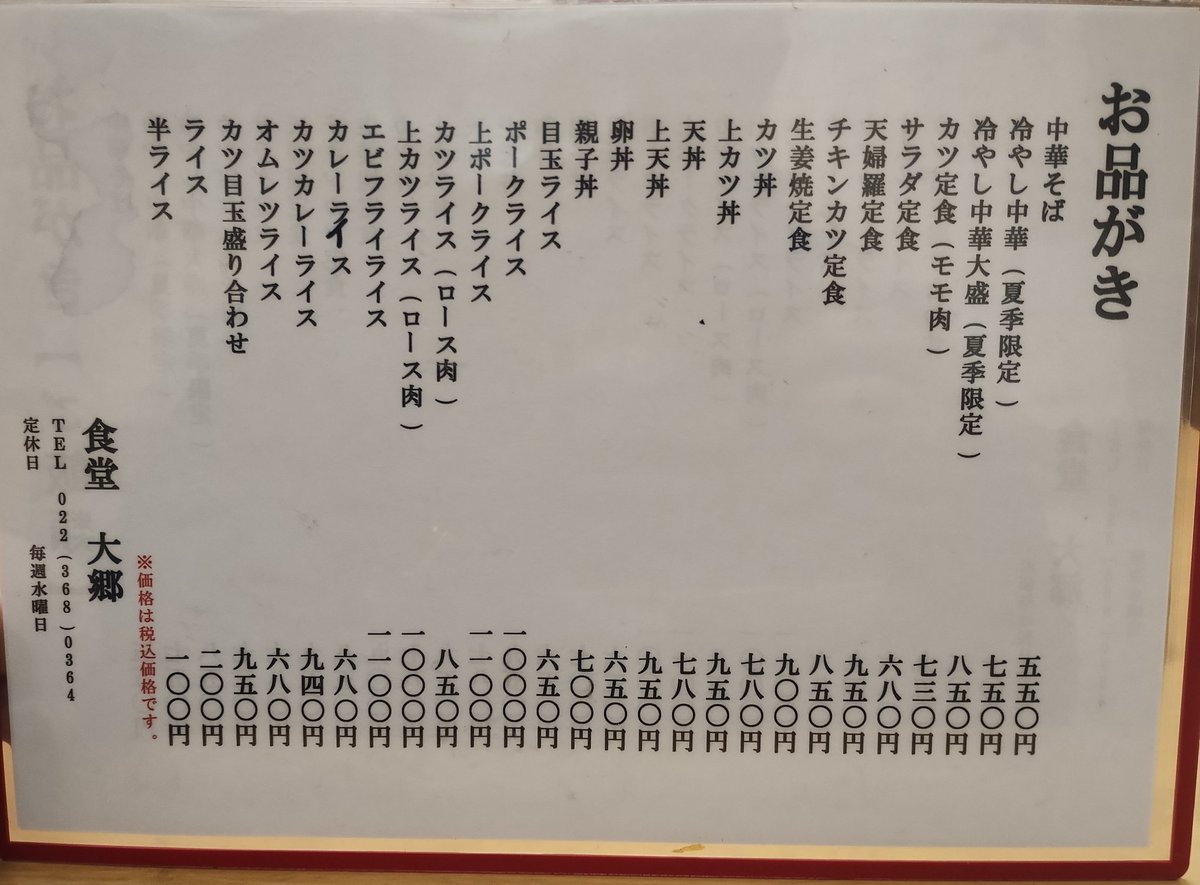 お品がき
中華そば 五五〇円
冷やし中華（夏季限定） 七五〇円
冷やし中華大盛（夏季限定） 八五〇円
カツ定食（モモ肉） 七三〇円
サラダ定食 六八〇円
天婦羅定食 九五〇円
チキンカツ定食 八五〇円
生姜焼定食 九〇〇円
カツ丼 七八〇円
上カツ丼 九五〇円
天丼 七八〇円
上天丼 九五〇円
卵丼 六五〇円
親子丼 七〇〇円
目玉ライス 六五〇円
ポークライス 一〇〇〇円
上ポークライス 一一〇〇円
カツライス（ロース肉） 八五〇円
上カツライス（ロース肉） 一〇〇〇円
エビフライライス 一一〇〇円
カレーライス 六八〇円
カツカレーライス 九四〇円
オムレツライス 六八〇円
カツ目玉盛り合わせ 九五〇円
ライス 二〇〇円
半ライス 一〇〇円
※価格は税込価格です。
食堂 大郷
TEL 022(368)0364
定休日 毎週水曜日